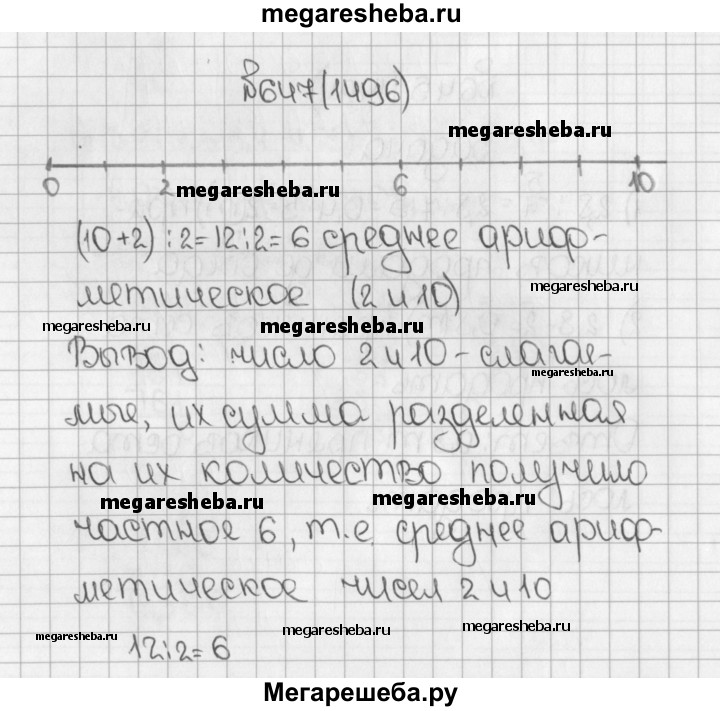 megaresheba.ru
№647(1496)
megaresheba.ru
0 2 6 10
megaresheba.ru
(10+2):2=12:2=6 среднее ариф-
метическое (2 и 10)
megaresheba.ru
megaresheba.ru
megaresheba.ru
Вывод: число 2 и 10 - слагае-
megaresheba.ru
мые, их сумма разделенная
на их количество получило
megaresheba.ru
megaresheba.ru
частное 6, т.е среднее ариф-
метическое чисел 2 и 10
megaresheba.ru
megaresheba.ru
megaresheba.ru
12:2=6
Мегарешеба.ру